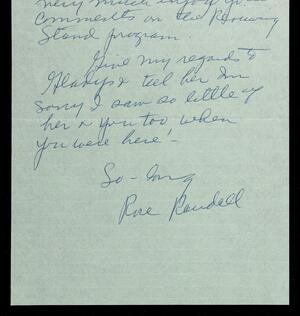 very much enjoy your
comments on the
Stand program.
Give my regards to
Gladys & tell her Im
sorry I saw so little of
her & you too when
you were here'–
So-long
Rose Randell